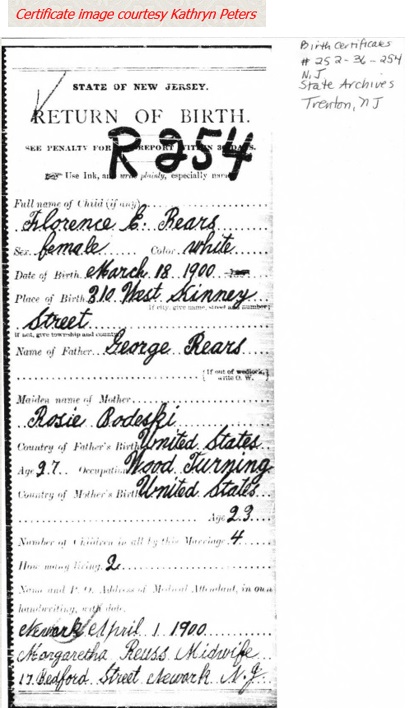 Certificate image courtesy Kathryn Peters
Birth Certificates
# 252-36-254
N.J
State Archives
Trenton, NJ
STATE OF NEW JERSEY.
RETURN OF BIRTH.
SEE PENALTY FOR REPORT WITHIN 30 DAYS.
R254
Use Ink, and write plainly, especially names
Full name of Child (if any)
Florence E. Rears
Sex. female Color. white
Date of Birth. March 18 1900
Place of Birth 210 West Kinney
If city, give name, street and number
Street
If not, give township and county
Name of Father George Rears
If out of wedlock, write O. W.
Maiden name of Mother
Rosie Bodeski
Country of Father's Birth United States
Age 27 Occupation Wood Turning
Country of Mother's Birth United States
Age 23
Number of Children in all by this Marriage 4
How many living. 2
Name and P. O. Address of Medical Attendant, in own
handwriting, with date.
Newark April 1 1900
Margaretha Reuss Midwife
17 Bedford Street Newark N.J.